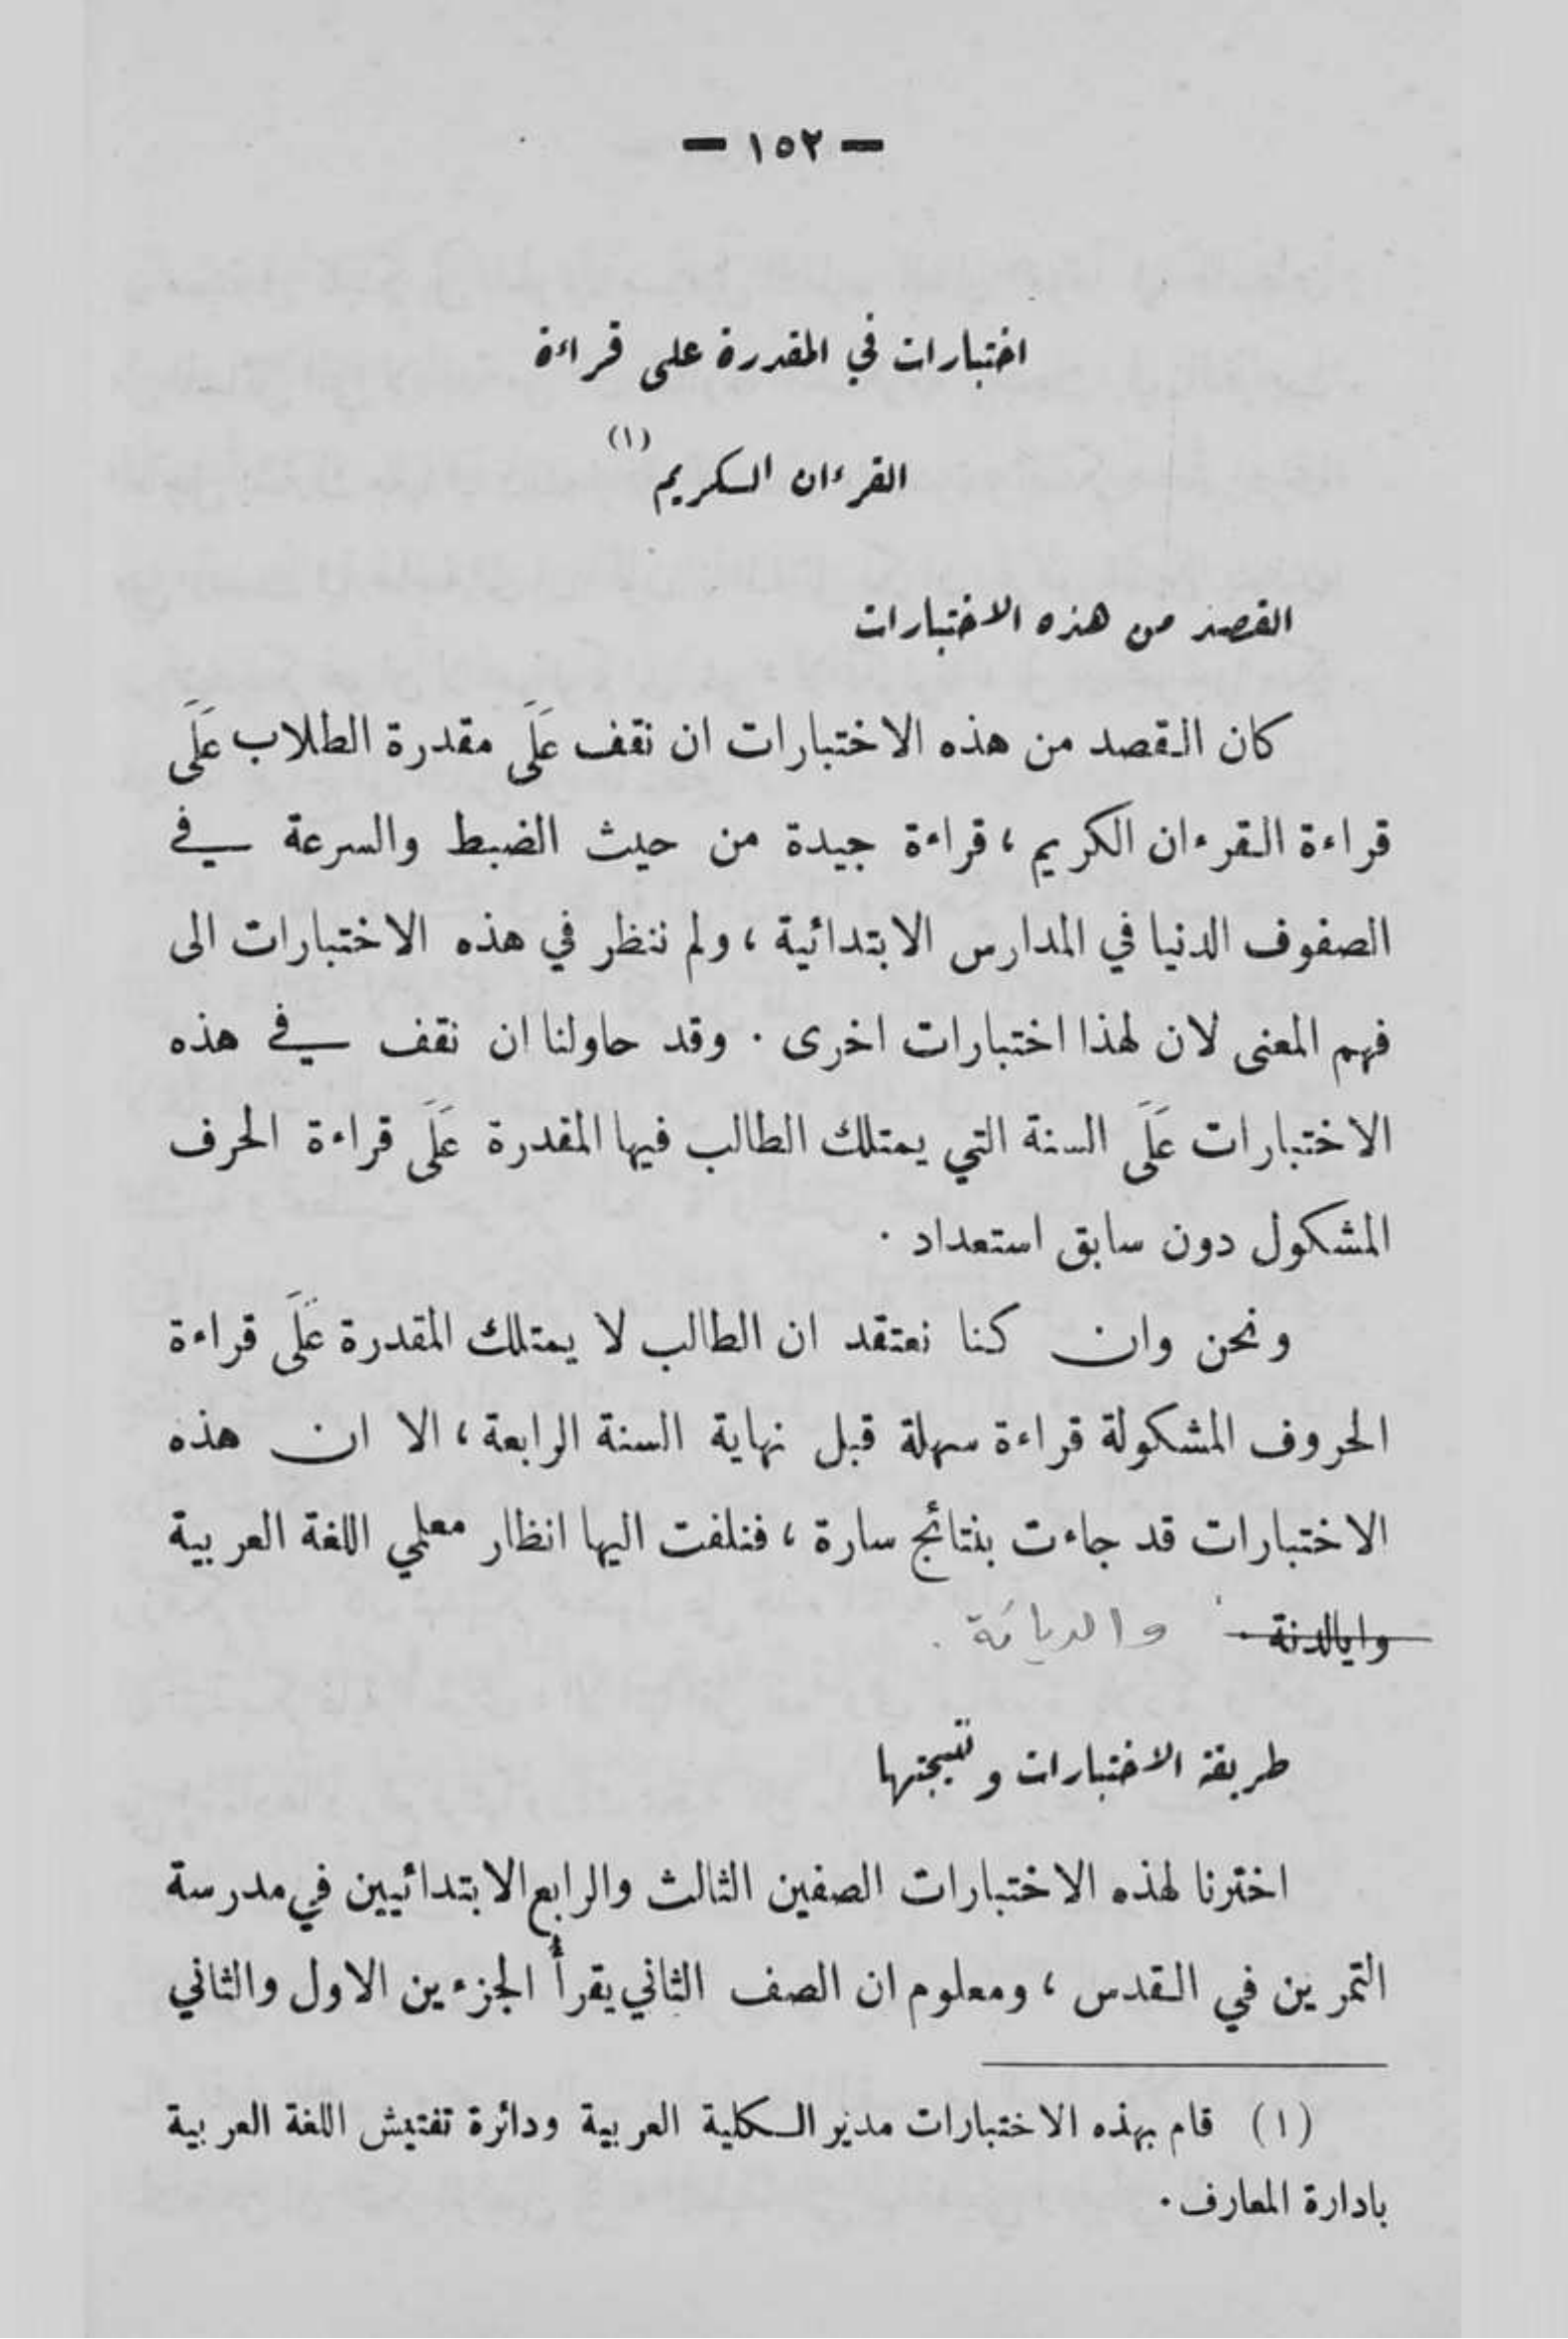 — ١٥٢ —
اختبارات في المقدرة على قراءة
القرءان الكريم (١)
القصد من هذه الاختبارات
كان القصد من هذه الاختبارات ان نقف عَلَى مقدرة الطلاب عَلَى
قراءة القرءان الكريم ، قراءة جيدة من حيث الضبط والسرعة في
الصفوف الدنيا في المدارس الابتدائية ، ولم ننظر في هذه الاختبارات الى
فهم المعنى لان لهذا اختبارات اخرى . وقد حاولنا ان نقف في هذه
الاختبارات عَلَى السنة التي يمتلك الطالب فيها المقدرة عَلَى قراءة الحرف
المشكول دون سابق استعداد .
ونحن وان كنا نعتقد ان الطالب لا يمتلك المقدرة عَلَى قراءة
الحروف المشكولة قراءة سهلة قبل نهاية السنة الرابعة ، الا ان هذه
الاختبارات قد جاءت بنتائج سارة ، فنلفت اليها انظار معلمي اللغة العربية
وايالدنة . والديانة .
طريقة الاختبارات ونتيجتها
اخترنا لهذه الاختبارات الصفين الثالث والرابع الابتدائيين في مدرسة
التمرين في القدس ، ومعلوم ان الصف الثاني يقرأ الجزءين الاول والثاني
(١) قام بهذه الاختبارات مدير الكلية العربية ودائرة تفتيش اللغة العربية
بادارة المعارف .